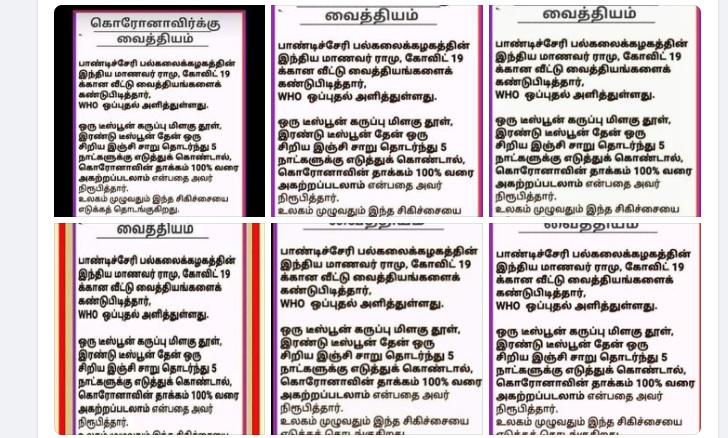 கொரோனாவிர்க்கு
வைத்தியம்
பாண்டிச்சேரி பல்கலைக்கழகத்தின்
இந்திய மாணவர் ராமு, கோவிட் 19
க்கான வீட்டு வைத்தியங்களைக்
கண்டுபிடித்தார்,
WHO ஒப்புதல் அளித்துள்ளது.
ஒரு டீஸ்பூன் கருப்பு மிளகு தூள்,
இரண்டு டீஸ்பூன் தேன் ஒரு
சிறிய இஞ்சி சாறு தொடர்ந்து 5
நாட்களுக்கு எடுத்துக் கொண்டால்,
கொரோனாவின் தாக்கம் 100% வரை
அகற்றப்படலாம் என்பதை அவர்
நிரூபித்தார்.
உலகம் முழுவதும் இந்த சிகிச்சையை
எடுக்கத் தொடங்குகிறது.
வைத்தியம்
பாண்டிச்சேரி பல்கலைக்கழகத்தின்
இந்திய மாணவர் ராமு, கோவிட் 19
க்கான வீட்டு வைத்தியங்களைக்
கண்டுபிடித்தார்,
WHO ஒப்புதல் அளித்துள்ளது.
ஒரு டீஸ்பூன் கருப்பு மிளகு தூள்,
இரண்டு டீஸ்பூன் தேன் ஒரு
சிறிய இஞ்சி சாறு தொடர்ந்து 5
நாட்களுக்கு எடுத்துக் கொண்டால்,
கொரோனாவின் தாக்கம் 100% வரை
அகற்றப்படலாம் என்பதை அவர்
நிரூபித்தார்.
உலகம் முழுவதும் இந்த சிகிச்சையை
வைத்தியம்
பாண்டிச்சேரி பல்கலைக்கழகத்தின்
இந்திய மாணவர் ராமு, கோவிட் 19
க்கான வீட்டு வைத்தியங்களைக்
கண்டுபிடித்தார்,
WHO ஒப்புதல் அளித்துள்ளது.
ஒரு டீஸ்பூன் கருப்பு மிளகு தூள்,
இரண்டு டீஸ்பூன் தேன் ஒரு
சிறிய இஞ்சி சாறு தொடர்ந்து 5
நாட்களுக்கு எடுத்துக் கொண்டால்,
கொரோனாவின் தாக்கம் 100% வரை
அகற்றப்படலாம் என்பதை அவர்
நிரூபித்தார்.
உலகம் முழுவதும் இந்த சிகிச்சையை
வைத்தியம்
பாண்டிச்சேரி பல்கலைக்கழகத்தின்
இந்திய மாணவர் ராமு, கோவிட் 19
க்கான வீட்டு வைத்தியங்களைக்
கண்டுபிடித்தார்,
WHO ஒப்புதல் அளித்துள்ளது.
ஒரு டீஸ்பூன் கருப்பு மிளகு தூள்,
இரண்டு டீஸ்பூன் தேன் ஒரு
சிறிய இஞ்சி சாறு தொடர்ந்து 5
நாட்களுக்கு எடுத்துக் கொண்டால்,
கொரோனாவின் தாக்கம் 100% வரை
அகற்றப்படலாம் என்பதை அவர்
நிரூபித்தார்.
பாண்டிச்சேரி பல்கலைக்கழகத்தின்
இந்திய மாணவர் ராமு, கோவிட் 19
க்கான வீட்டு வைத்தியங்களைக்
கண்டுபிடித்தார்,
WHO ஒப்புதல் அளித்துள்ளது.
ஒரு டீஸ்பூன் கருப்பு மிளகு தூள்,
இரண்டு டீஸ்பூன் தேன் ஒரு
சிறிய இஞ்சி சாறு தொடர்ந்து 5
நாட்களுக்கு எடுத்துக் கொண்டால்,
கொரோனாவின் தாக்கம் 100% வரை
அகற்றப்படலாம் என்பதை அவர்
நிரூபித்தார்.
உலகம் முழுவதும் இந்த சிகிச்சையை
வைத்தியம்
பாண்டிச்சேரி பல்கலைக்கழகத்தின்
இந்திய மாணவர் ராமு, கோவிட் 19
க்கான வீட்டு வைத்தியங்களைக்
கண்டுபிடித்தார்,
WHO ஒப்புதல் அளித்துள்ளது.
ஒரு டீஸ்பூன் கருப்பு மிளகு தூள்,
இரண்டு டீஸ்பூன் தேன் ஒரு
சிறிய இஞ்சி சாறு தொடர்ந்து 5
நாட்களுக்கு எடுத்துக் கொண்டால்,
கொரோனாவின் தாக்கம் 100% வரை
அகற்றப்படலாம் என்பதை அவர்
நிரூபித்தார்.
உலகம் முழுவதும் இந்த சிகிச்சையை